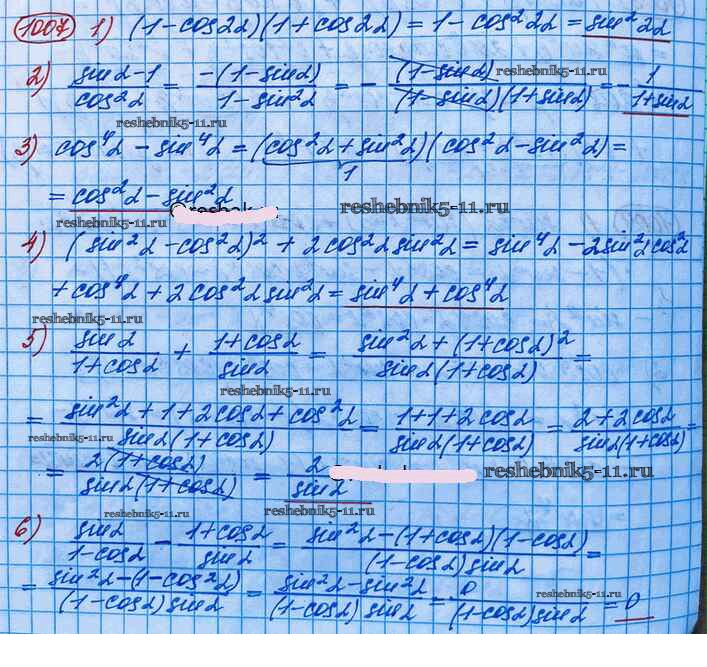 1007 1) (1-cos2α)(1+cos2α) = 1-cos²2α = sin²2α
2) (sinα-1)/cos²α = -(1-sinα)/(1-sin²α) = - (1-sinα)/((1-sinα)(1+sinα)) = - 1/(1+sinα)
reshebnik5-11.ru
reshebnik5-11.ru
3) cos⁴α - sin⁴α = (cos²α + sin²α)(cos²α - sin²α) =
1
= cos²α - sin²α
reshebnik5-11.ru
reshebnik5-11.ru
4) (sin²α - cos²α)² + 2cos²α sin²α = sin⁴α - 2sin²α cos²α
+ cos⁴α + 2cos²α sin²α = sin⁴α + cos⁴α
reshebnik5-11.ru
5) sinα/(1+cosα) + (1+cosα)/sinα = (sin²α + (1+cosα)²)/(sinα(1+cosα)) =
reshebnik5-11.ru
= (sin²α + 1 + 2cosα + cos²α)/(sinα(1+cosα)) = (1+1+2cosα)/(sinα(1+cosα)) = (2+2cosα)/(sinα(1+cosα)) =
reshebnik5-11.ru
= 2(1+cosα)/(sinα(1+cosα)) = 2/sinα
reshebnik5-11.ru
reshebnik5-11.ru
6) sinα/(1-cosα) - (1+cosα)/sinα = (sin²α - (1+cosα)(1-cosα))/((1-cosα)sinα) =
= (sin²α - (1-cos²α))/((1-cosα)sinα) = (sin²α - sin²α)/((1-cosα)sinα) = 0/((1-cosα)sinα) = 0
reshebnik5-11.ru